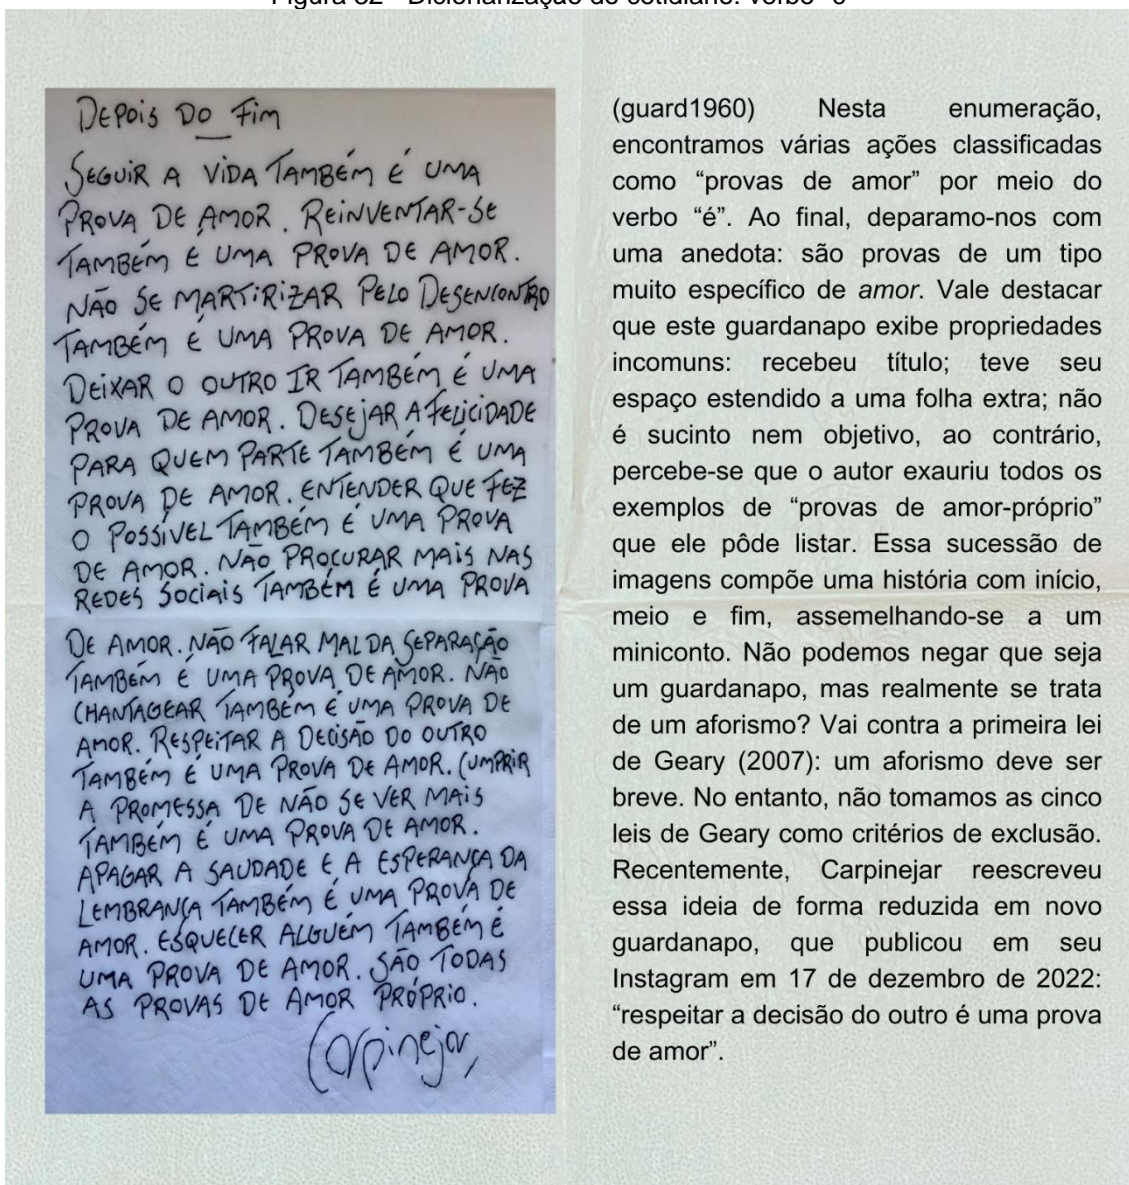 DEPOIS DO FIM
SEGUIR A VIDA TAMBÉM É UMA
PROVA DE AMOR. REINVENTAR-SE
TAMBÉM É UMA PROVA DE AMOR.
NÃO SE MARTIRIZAR PELO DESENCONTRO
TAMBÉM É UMA PROVA DE AMOR.
DEIXAR O OUTRO IR TAMBÉM É UMA
PROVA DE AMOR. DESEJAR A FELICIDADE
PARA QUEM PARTE TAMBÉM É UMA
PROVA DE AMOR. ENTENDER QUE FEZ
O POSSÍVEL TAMBÉM É UMA PROVA
DE AMOR. NÃO PROCURAR MAIS NAS
REDES SOCIAIS TAMBÉM É UMA PROVA
DE AMOR. NÃO FALAR MAL DA SEPARAÇÃO
TAMBÉM É UMA PROVA DE AMOR. NÃO
CHANTAGEAR TAMBÉM É UMA PROVA DE
AMOR. RESPEITAR A DECISÃO DO OUTRO
TAMBÉM É UMA PROVA DE AMOR. CUMPRIR
A PROMESSA DE NÃO SE VER MAIS
TAMBÉM É UMA PROVA DE AMOR.
APAGAR A SAUDADE E A ESPERANÇA DA
LEMBRANÇA TAMBÉM É UMA PROVA DE
AMOR. ESQUECER ALGUÉM TAMBÉM É
UMA PROVA DE AMOR. SÃO TODAS
AS PROVAS DE AMOR PRÓPRIO.
Carpinejar
(guard1960) Nesta enumeração,
encontramos várias ações classificadas
como “provas de amor” por meio do
verbo “é”. Ao final, deparamo-nos com
uma anedota: são provas de um tipo
muito específico de amor. Vale destacar
que este guardanapo exibe propriedades
incomuns: recebeu título; teve seu
espaço estendido a uma folha extra; não
é sucinto nem objetivo, ao contrário,
percebe-se que o autor exauriu todos os
exemplos de “provas de amor-próprio”
que ele pôde listar. Essa sucessão de
imagens compõe uma história com início,
meio e fim, assemelhando-se a um
miniconto. Não podemos negar que seja
um guardanapo, mas realmente se trata
de um aforismo? Vai contra a primeira lei
de Geary (2007): um aforismo deve ser
breve. No entanto, não tomamos as cinco
leis de Geary como critérios de exclusão.
Recentemente, Carpinejar reescreveu
essa ideia de forma reduzida em novo
guardanapo, que publicou em seu
Instagram em 17 de dezembro de 2022:
“respeitar a decisão do outro é uma prova
de amor”.